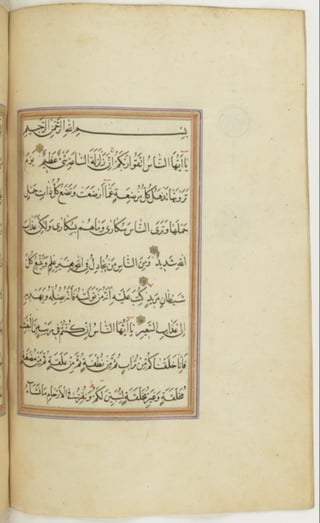 بسم الله الرحمن الرحيم
يا أيها الناس اتقوا ربكم إن زلزلة الساعة شيء عظيم يوم
ترونها تذهل كل مرضعة عما أرضعت وتضع كل ذات حمل
حملها وترى الناس سكارى وما هم بسكارى ولكن عذاب
الله شديد ومن الناس من يجادل في الله بغير علم ويتبع كل
شيطان مريد كتب عليه أنه من تولاه فأنه يضله ويهديه
إلى عذاب السعير يا أيها الناس إن كنتم في ريب من البعث
فإنا خلقناكم من تراب ثم من نطفة ثم من علقة ثم من مضغة
مخلقة وغير مخلقة لنبين لكم ونقر في الأرحام ما نشاء